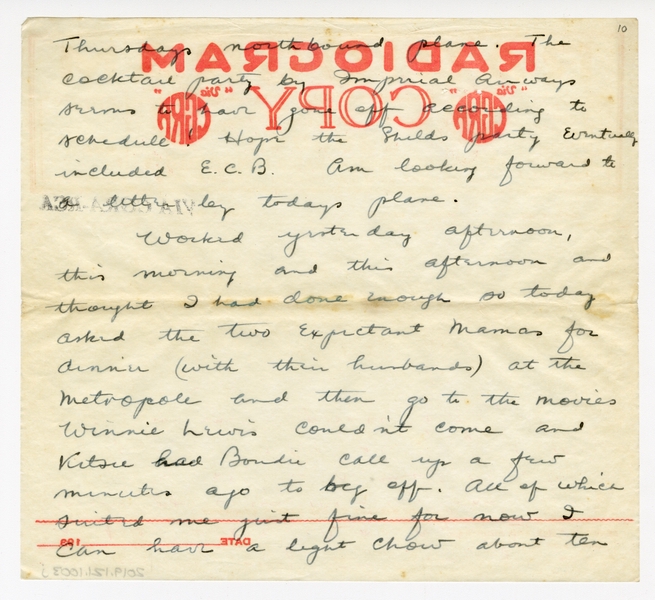 10
Thursdays northbound plane. The
RADIOGRAM
cocktail party by Imperial Airways
"Via" COPY "Via"
seems to have gone off according to
schedule! Hope the Shields party eventually
included E.C.B. Am looking forward to
a letter by todays plane.
Worked yesterday afternoon,
this morning and this afternoon and
thought I had done enough so today
asked the two Expectant Mamas for
dinner (with their husbands) at the
Metropole and then go to the movies
Winnie Lewis couldn't come and
Kitsie had Bondie call up a few
minutes ago to beg off. All of which
suited me just fine for now I
DATE 193
can have a light chow about ten
2019.12.1.1003 j